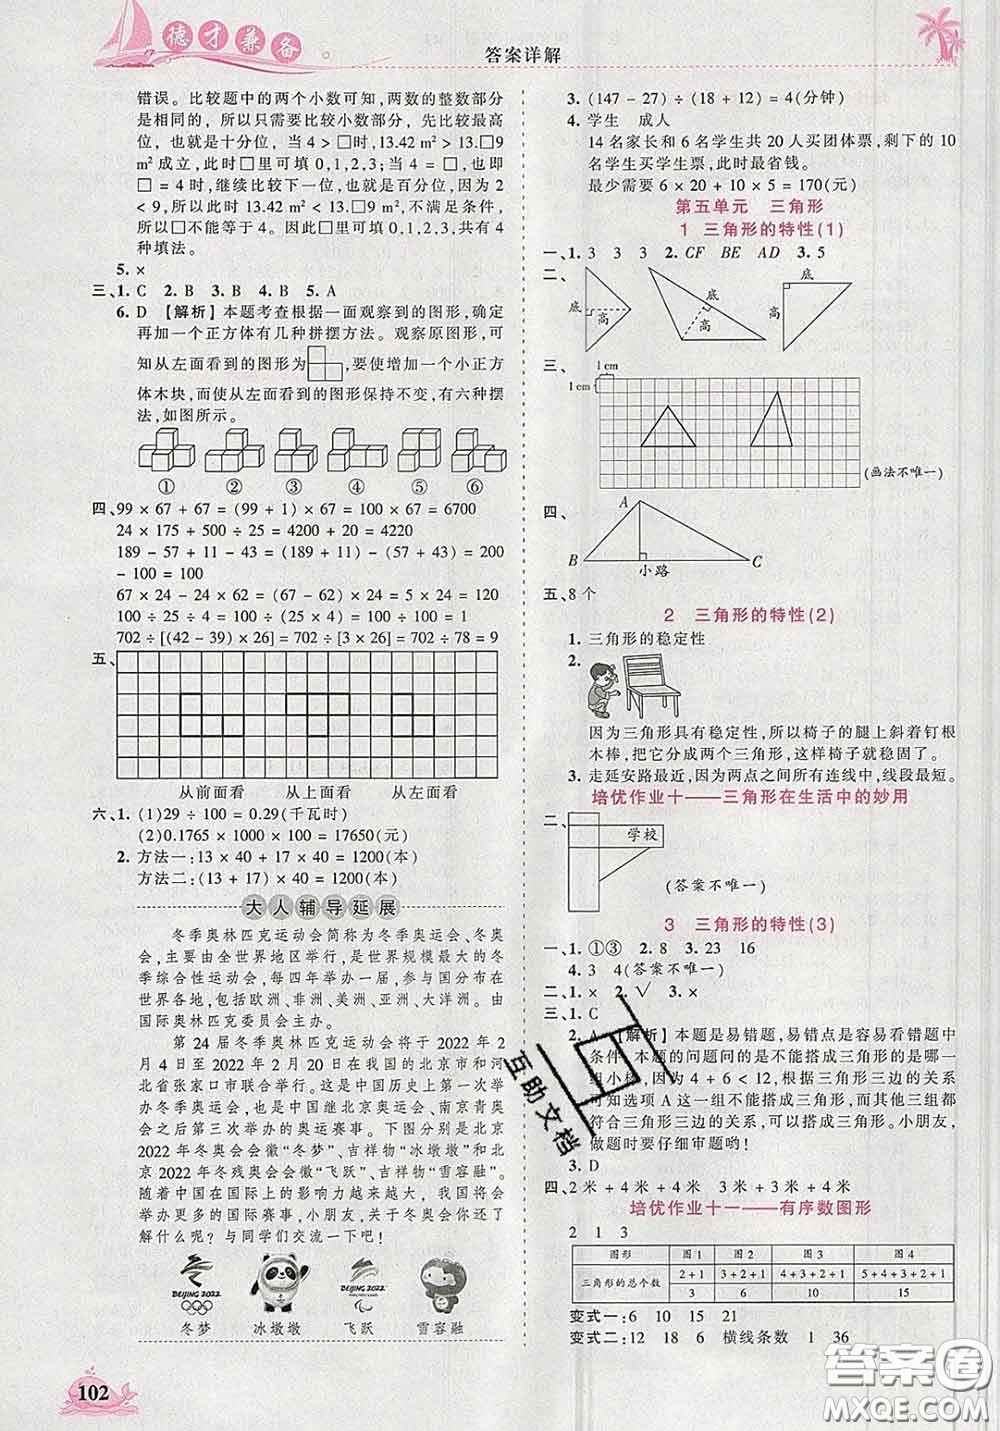 德才兼备
答案详解
错误。比较题中的两个小数可知，两数的整数部分
是相同的，所以只需要比较小数部分，先比较最高
位，也就是十分位，当4＞□时，13.42 m²＞13.□9
m²成立，此时□里可填0,1,2,3；当4＝□，也即
□＝4时，继续比较下一位，也就是百分位，因为2
＜9，所以此时13.42 m²＜13.□9 m²，不满足条件，
所以□不能等于4。因此□里可填0,1,2,3，共有4
种填法。
5. ×
三、1. C 2. B 3. B 4. B 5. A
6. D 【解析】本题考查根据一面观察到的图形，确定
再加一个正方体有几种拼摆方法。观察原图形，可
知从左面看到的图形为，要使增加一个小正方
体木块，而使从左面看到的图形保持不变，有六种摆
法，如图所示。
① ② ③ ④ ⑤ ⑥
四、99×67＋67＝(99＋1)×67＝100×67＝6700
24×175＋500÷25＝4200＋20＝4220
189－57＋11－43＝(189＋11)－(57＋43)＝200
－100＝100
67×24－62×24＝(67－62)×24＝5×24＝120
57＋43÷57＋43＝(57＋43)÷100＝100÷100＝1
702÷[(42－39)×26]＝702÷[3×26]＝702÷78＝9
五、
从前面看 从上面看 从左面看
六、1. (1)29÷100＝0.29(千瓦时)
(2)0.1765×1000×100＝17650(元)
2. 方法一：13×40＋17×40＝1200(本)
方法二：(13＋17)×40＝1200(本)
大人辅导延展
冬季奥林匹克运动会简称为冬季奥运会、冬奥
会，主要由全世界地区举行，是世界规模最大的冬
季综合性运动会，每四年举办一届，参与国分布在
世界各地，包括欧洲、非洲、美洲、亚洲、大洋洲。由
国际奥林匹克委员会主办。
第24届冬季奥林匹克运动会将于2022年2
月4日至2022年2月20日在我国的北京市和河
北省张家口市联合举行。这是中国历史上第一次举
办冬季奥运会，也是中国继北京奥运会、南京青奥
会之后第三次举办的奥运赛事。下图分别是北京
2022年冬奥会会徽“冬梦”、吉祥物“冰墩墩”和北
京2022年冬残奥会会徽“飞跃”、吉祥物“雪容融”。
随着中国在国际上的影响力越来越大，我们将会
举办更多的国际赛事，小朋友，关于冬奥会你还了
解什么呢？与同学们交流一下吧！
BEIJING 2022 BEIJING 2022
冬梦 冰墩墩 飞跃 雪容融
102
3. (147－27)÷(18＋12)＝4(分钟)
4. 学生 成人
14名家长和6名学生共20人买团体票，剩下的10
名学生买学生票，此时最省钱。
最少需要6×20＋10×5＝170(元)
第五单元 三角形
1 三角形的特性(1)
一、1. 3 3 3 2. CF BE AD 3. 5
二、
底 高 底 高 底 高
三、
1 cm
1 cm
(画法不唯一)
四、
A
B 小路 C
五、8个
2 三角形的特性(2)
1. 三角形的稳定性
2.
因为三角形具有稳定性，所以椅子的腿上斜着钉根
木棒，把它分成两个三角形，这样椅子就稳固了。
3. 走延安路最近，因为两点之间所有连线中，线段最短。
培优作业十——三角形在生活中的妙用
二、
学校
(答案不唯一)
3 三角形的特性(3)
一、1. ①③ 2. 8 3. 23 16
4. 3 4(答案不唯一)
二、1. × 2. √ 3. ×
三、1. C
2. A 【解析】本题是易错题，易错点是容易看错题中
条件，本题的问题问的是不能搭成三角形的是哪一
组小棒，因为4＋6＜12，根据三角形三边的关系
可知选项A这一组不能搭成三角形，而其他三组都
符合三角形三边的关系。小朋友，
做题时要仔细审题哟！
3. D
四、2米＋4米＋4米 3米＋3米＋4米
培优作业十一——有序数图形
2 1 3
图形 图1 图2 图3 图4
三角形的总个数 2＋1 3＋2＋1 4＋3＋2＋1 5＋4＋3＋2＋1
3 6 10 15
变式一：6 10 15 21
变式二：12 18 6 横线条数 1 36
互助文档
答案卷
MXQE.COM